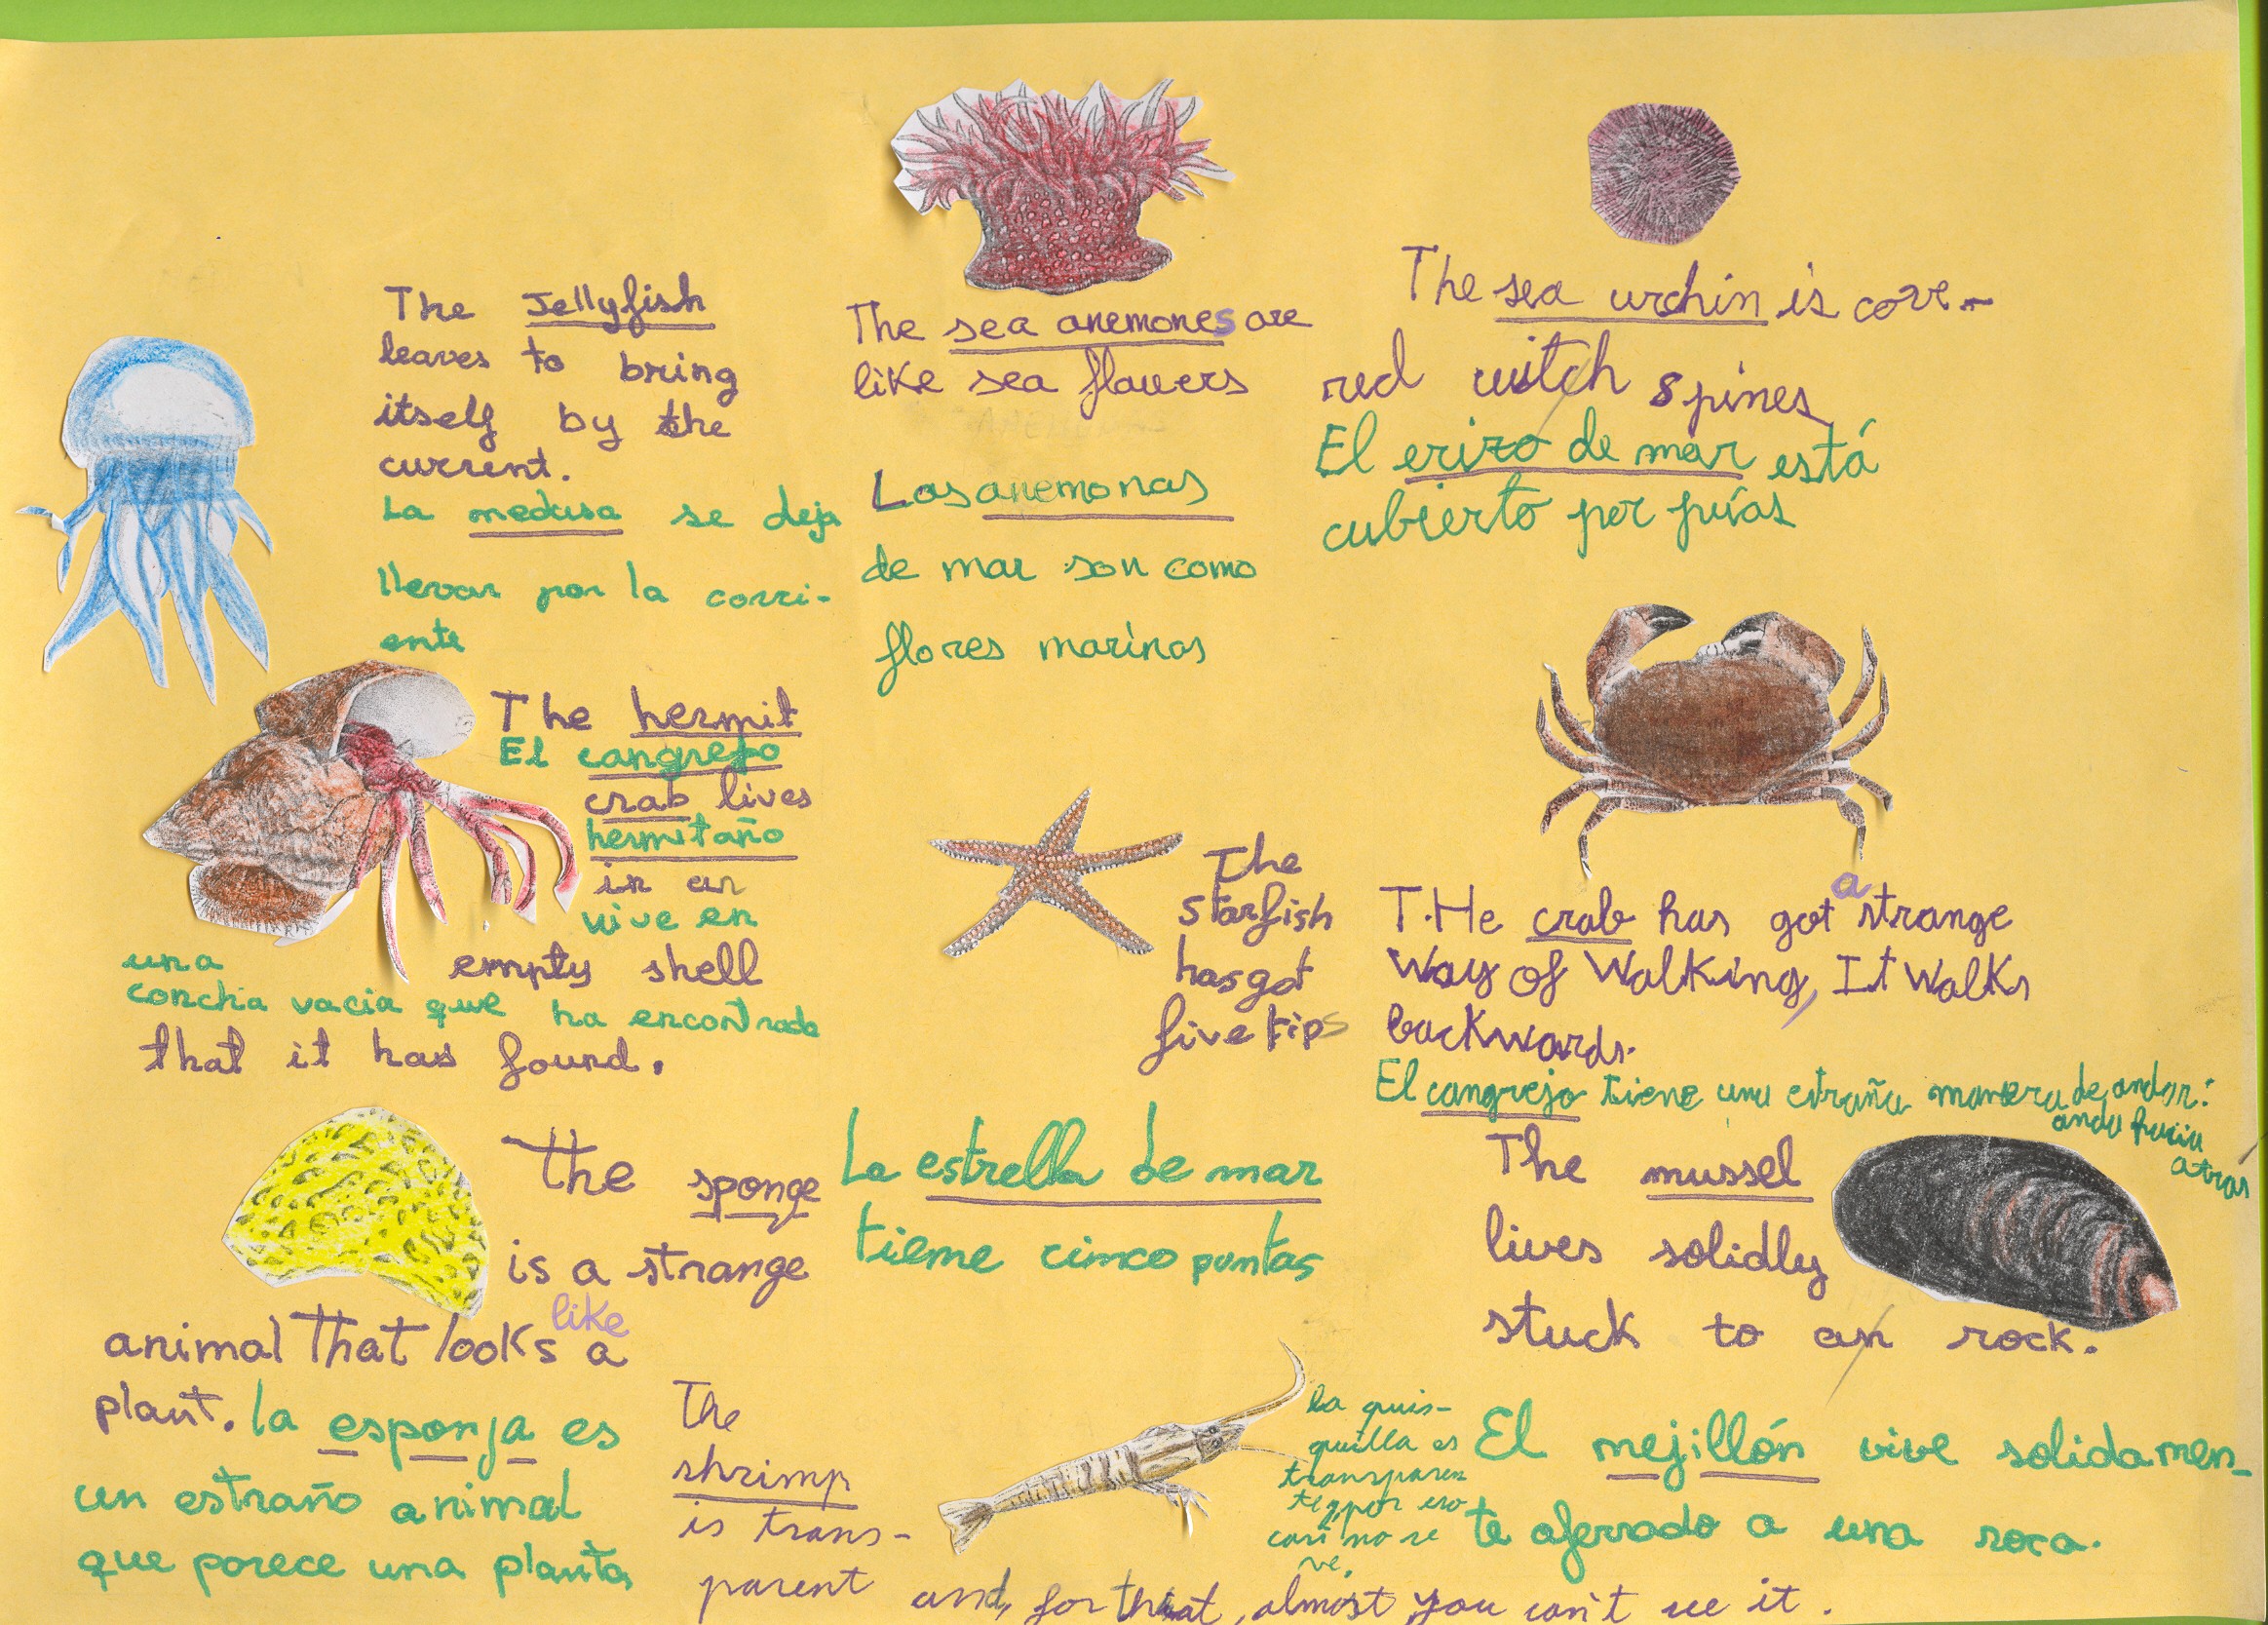 The Jellyfish
leaves to bring
itself by the
current.
La medusa se deja
llevar por la corri-
ente
The sea anemones are
like sea flowers
Las anemonas
de mar son como
flores marinas
The sea urchin is cove-
red witch spines
El erizo de mar está
cubierto por púas
The hermit
El cangrejo
crab lives
hermitaño
in an
vive en
empty shell
una
concha vacia que ha encontrado
that it has found.
The
starfish
has got
five tips
La estrella de mar
tieme cimco puntas
THe crab has got a strange
way of walking, It walks
backwards.
El cangrejo tiene una estraña manera de andar:
anda hacia
atrás
The sponge
is a strange
animal that looks like a
plant. la esponja es
un estraño animal
que parece una planta
The mussel
lives solidly
stuck to an rock.
El mejillón vive solidamen-
te aferrado a una roca.
The
shrimp
is trans-
parent and, for that, almost you can't see it.
La quis-
quilla es
transparen
te y por eso
casi no se
ve.